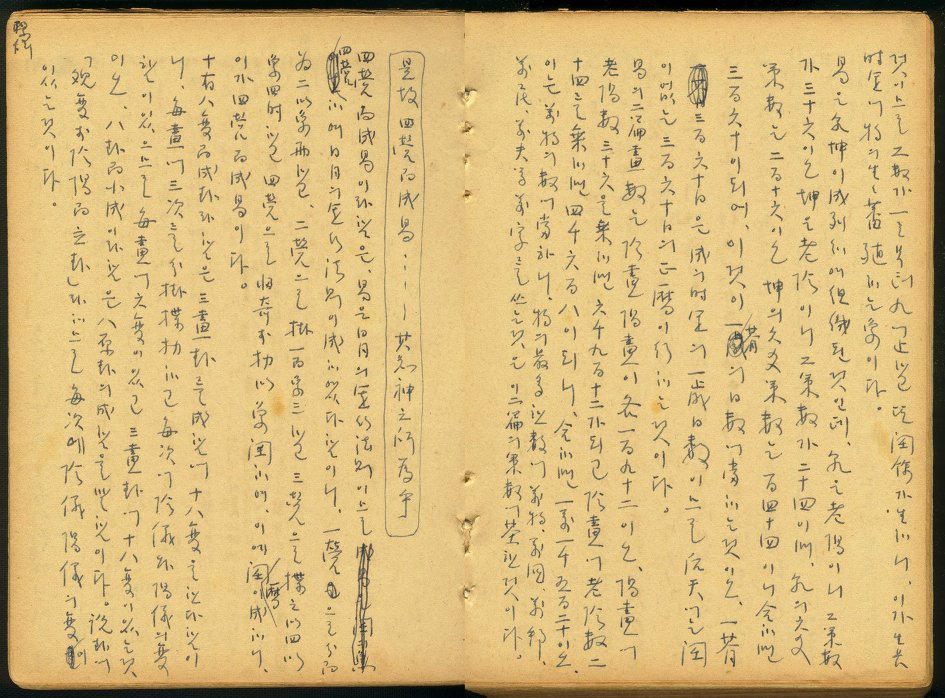 것이므로 그 數가 一로 九에 止하고 또 閏餘가 生하니, 이가 生長
物의 生生蕃殖하는 象이다.
易은 乾坤이 成列하매 것인데, 乾은 老陽이니 그 策數
가 三十六이오 坤은 老陰이니 그 策數가 二十四이며, 乾의 六爻
策數는 二百十六이오 坤의 六爻策數는 百四十四이니 合하면
三百六十이 되매, 이것이 一朞의 日數에 當하는 것이오, 一朞
三百六十日은 一歲日數이므로 先天에는 閏
이 없는 三百六十日의 正曆이 行하는 것이다.
易의 二篇畫數는 陰畫陽畫이 各一百九十二이오, 陽畫에
老陽數 三十六을 乘하면 六千九百十二가 되고 陰畫에 老陰數 二
十四를 乘하면 四千六百八이 되니, 合하면 一萬一千五百二十이오,
이는 萬物의 數에 當하니, 物의 最多한 數에 萬物, 萬國, 萬邦,
萬民, 萬夫等 萬字를 쓰는 것은 이 二篇의 策數에 基한 것이다.
是故四營而成易⋯⋯其知神之所爲乎
四營而成易이라 함은, 易은 日月의 運行法則이므로
四營하매 日月의 運行法則이 成하였다 함이니, 一營은 分而
爲二以象兩하고, 二營은 掛一以象三하고 三營은 揲之以四以
象四時하고 四營은 歸奇於扐以象閏하매, 이에 閏曆이 成하니,
이가 四營而成易이다.
十有八變而成卦라 함은 三畫卦를 成함에 十八變을 한다 함이
니, 每畫에 三次를 分掛揲扐하고 每次에 陰儀와 陽儀의 變
함이 있으므로 每畫에 六變이 있고 三畫卦에 十八變이 있는 것
이오, 八卦而小成이라 함은 八卦의 成함을 함이다. 說卦에
「觀變於陰陽而立卦」라 하므로 每次에 陰儀陽儀의 變이
있는 것이다.